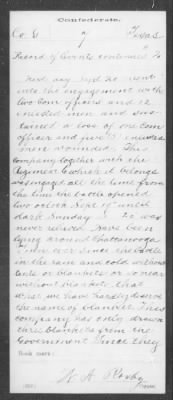 Confederate.
Co. G 7 Texas
Record of Events continued
went
into the engagement with
two Com officers and 12
enlisted men and sus-
tained a loss of one com
officer and five enlisted
men wounded. This
company together with the
Regiment to which it belongs
was engaged all the time from
the time the battle opened
two oclock Sept 19 until
dark Sunday & Co was
never relieved have been
lying around Chattanooga
ever since the battle
in the rain and cold without
tents or blankets or so near
without blankets that
what we have hardly deserve
the name of blanket This
company has only drawn
three blankets from the
Government since they
Book mark:
Copyist.